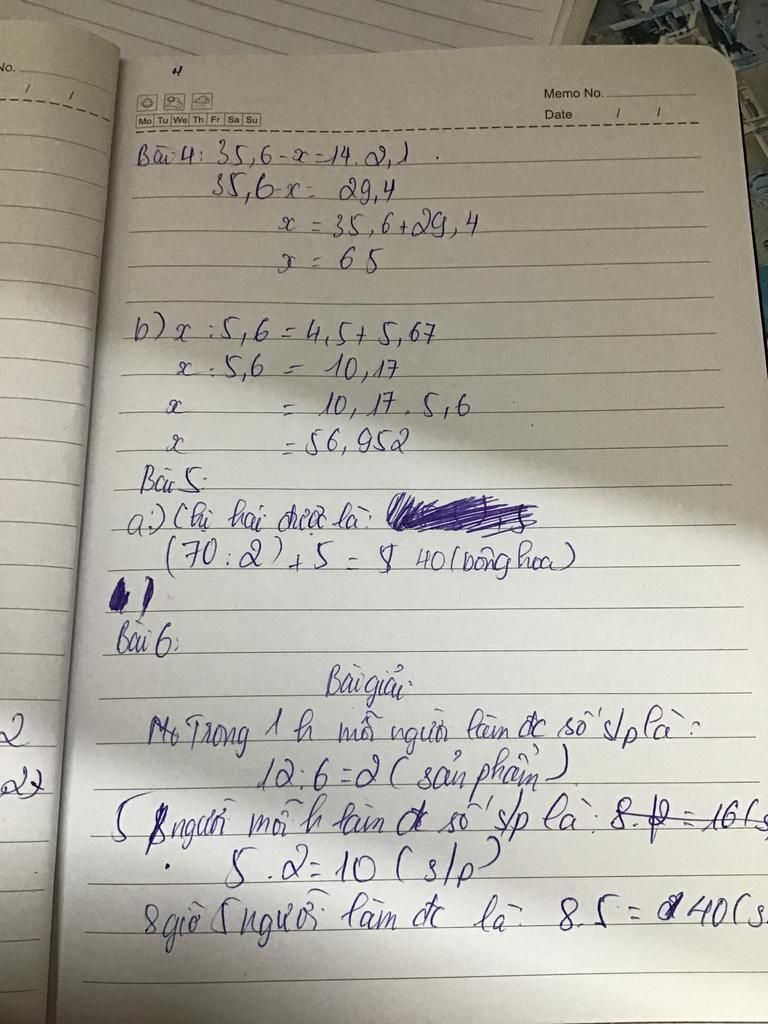 No.
/ /
Memo No.
Mo Tu We Th Fr Sa Su
Date / /
Bài 4: 35,6 - x = 14.2,1
35,6 - x = 29,4
x = 35,6 + 29,4
x = 65
b) x : 5,6 = 4,5 + 5,67
x : 5,6 = 10,17
x = 10,17.5,6
x = 56,952
Bài 5:
a:) Chị hái được là:
(70 : 2) + 5 = 40 (bông hoa)
Bài 6:
Bài giải:
Trong 1 h mỗi người làm đc số s/p là:
12 : 6 = 2 (sản phẩm)
5 người mỗi h làm đc số s/p là: 8.2 = 16 (s
5.2 = 10 (s/p)
8 giờ 5 người làm đc là: 8.5 = 40 (s
2
27